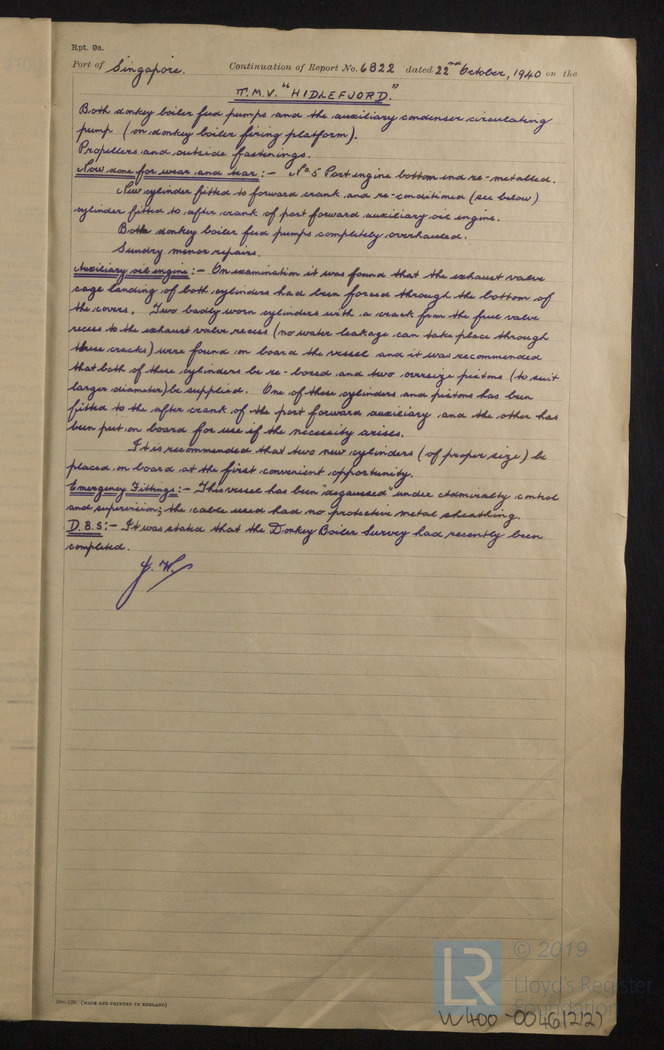 Rpt. 9a.
Port of Singapore. Continuation of Report No. 6822 dated 22nd October, 1940 on the
T.M.V. "HIDLEFJORD."
Both donkey boiler feed pumps and the auxiliary condenser circulating
pump (on donkey boiler firing platform).
Propellers and outside fastenings.
Now done for wear and tear:- No. 5 Port engine bottom end re-metalled.
New cylinder fitted to forward crank and re-conditioned (see below)
cylinder fitted to after crank of port forward auxiliary oil engine.
Both donkey boiler feed pumps completely overhauled.
Sundry minor repairs.
Auxiliary oil engine:- On examination it was found that the exhaust valve
cage landing of both cylinders had been forced through the bottom of
the covers. Two badly worn cylinders with a crack from the fuel valve
recess to the exhaust valve recess (no water leakage can take place through
these cracks) were found on board the vessel and it was recommended
that both of these cylinders be re-bored and two oversize pistons (to suit
larger diameter) be supplied. One of these cylinders and pistons has been
fitted to the after crank of the port forward auxiliary and the other has
been put on board for use if the necessity arises.
It is recommended that two new cylinders (of proper size) be
placed on board at the first convenient opportunity.
Emergency Fittings:- This vessel has been "degaussed" under Admiralty control
and supervision; the cable used had no protective metal sheathing.
D.B.S:- It was stated that the Donkey Boiler Survey had recently been
completed.
J. W.
(MADE AND PRINTED IN ENGLAND)
LR
© 2019
Lloyd's Register
Foundation
W400-0046 2/2